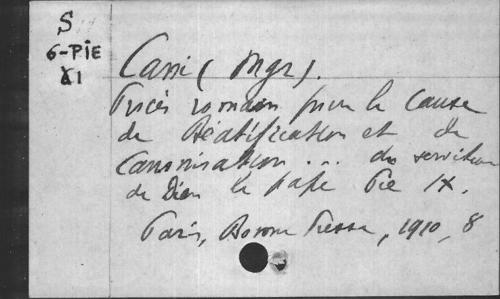 S
6-PIE
81
Cani (Mgr).
Procès romain pour la Cause
de Béatification et de
Canonisation ... du serviteur
de Dieu le pape Pie IX.
Paris, Bonne Presse, 1910, 8